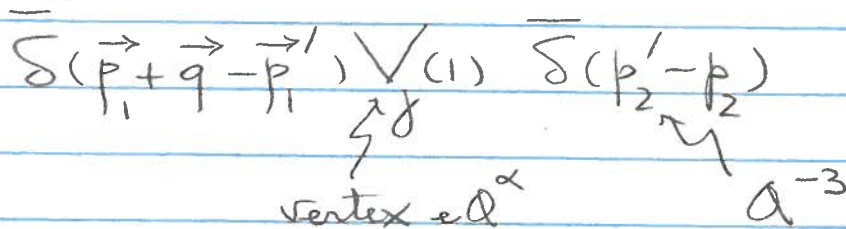 δ̄(p⃗₁ + q⃗ - p⃗₁′) V_γ(1) δ̄(p₂′ - p₂)
vertex eQ^α Q⁻³